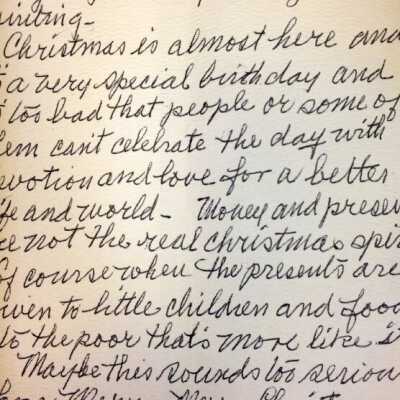 writing-
Christmas is almost here and
a very special birthday and
too bad that people or some of
em can't celebrate the day with
evotion and love for a better
fe and world- Money and presen
re not the real christmas spir
Of course when the presents are
iven to little children and food
to the poor that's more like it
Maybe this sounds too serious